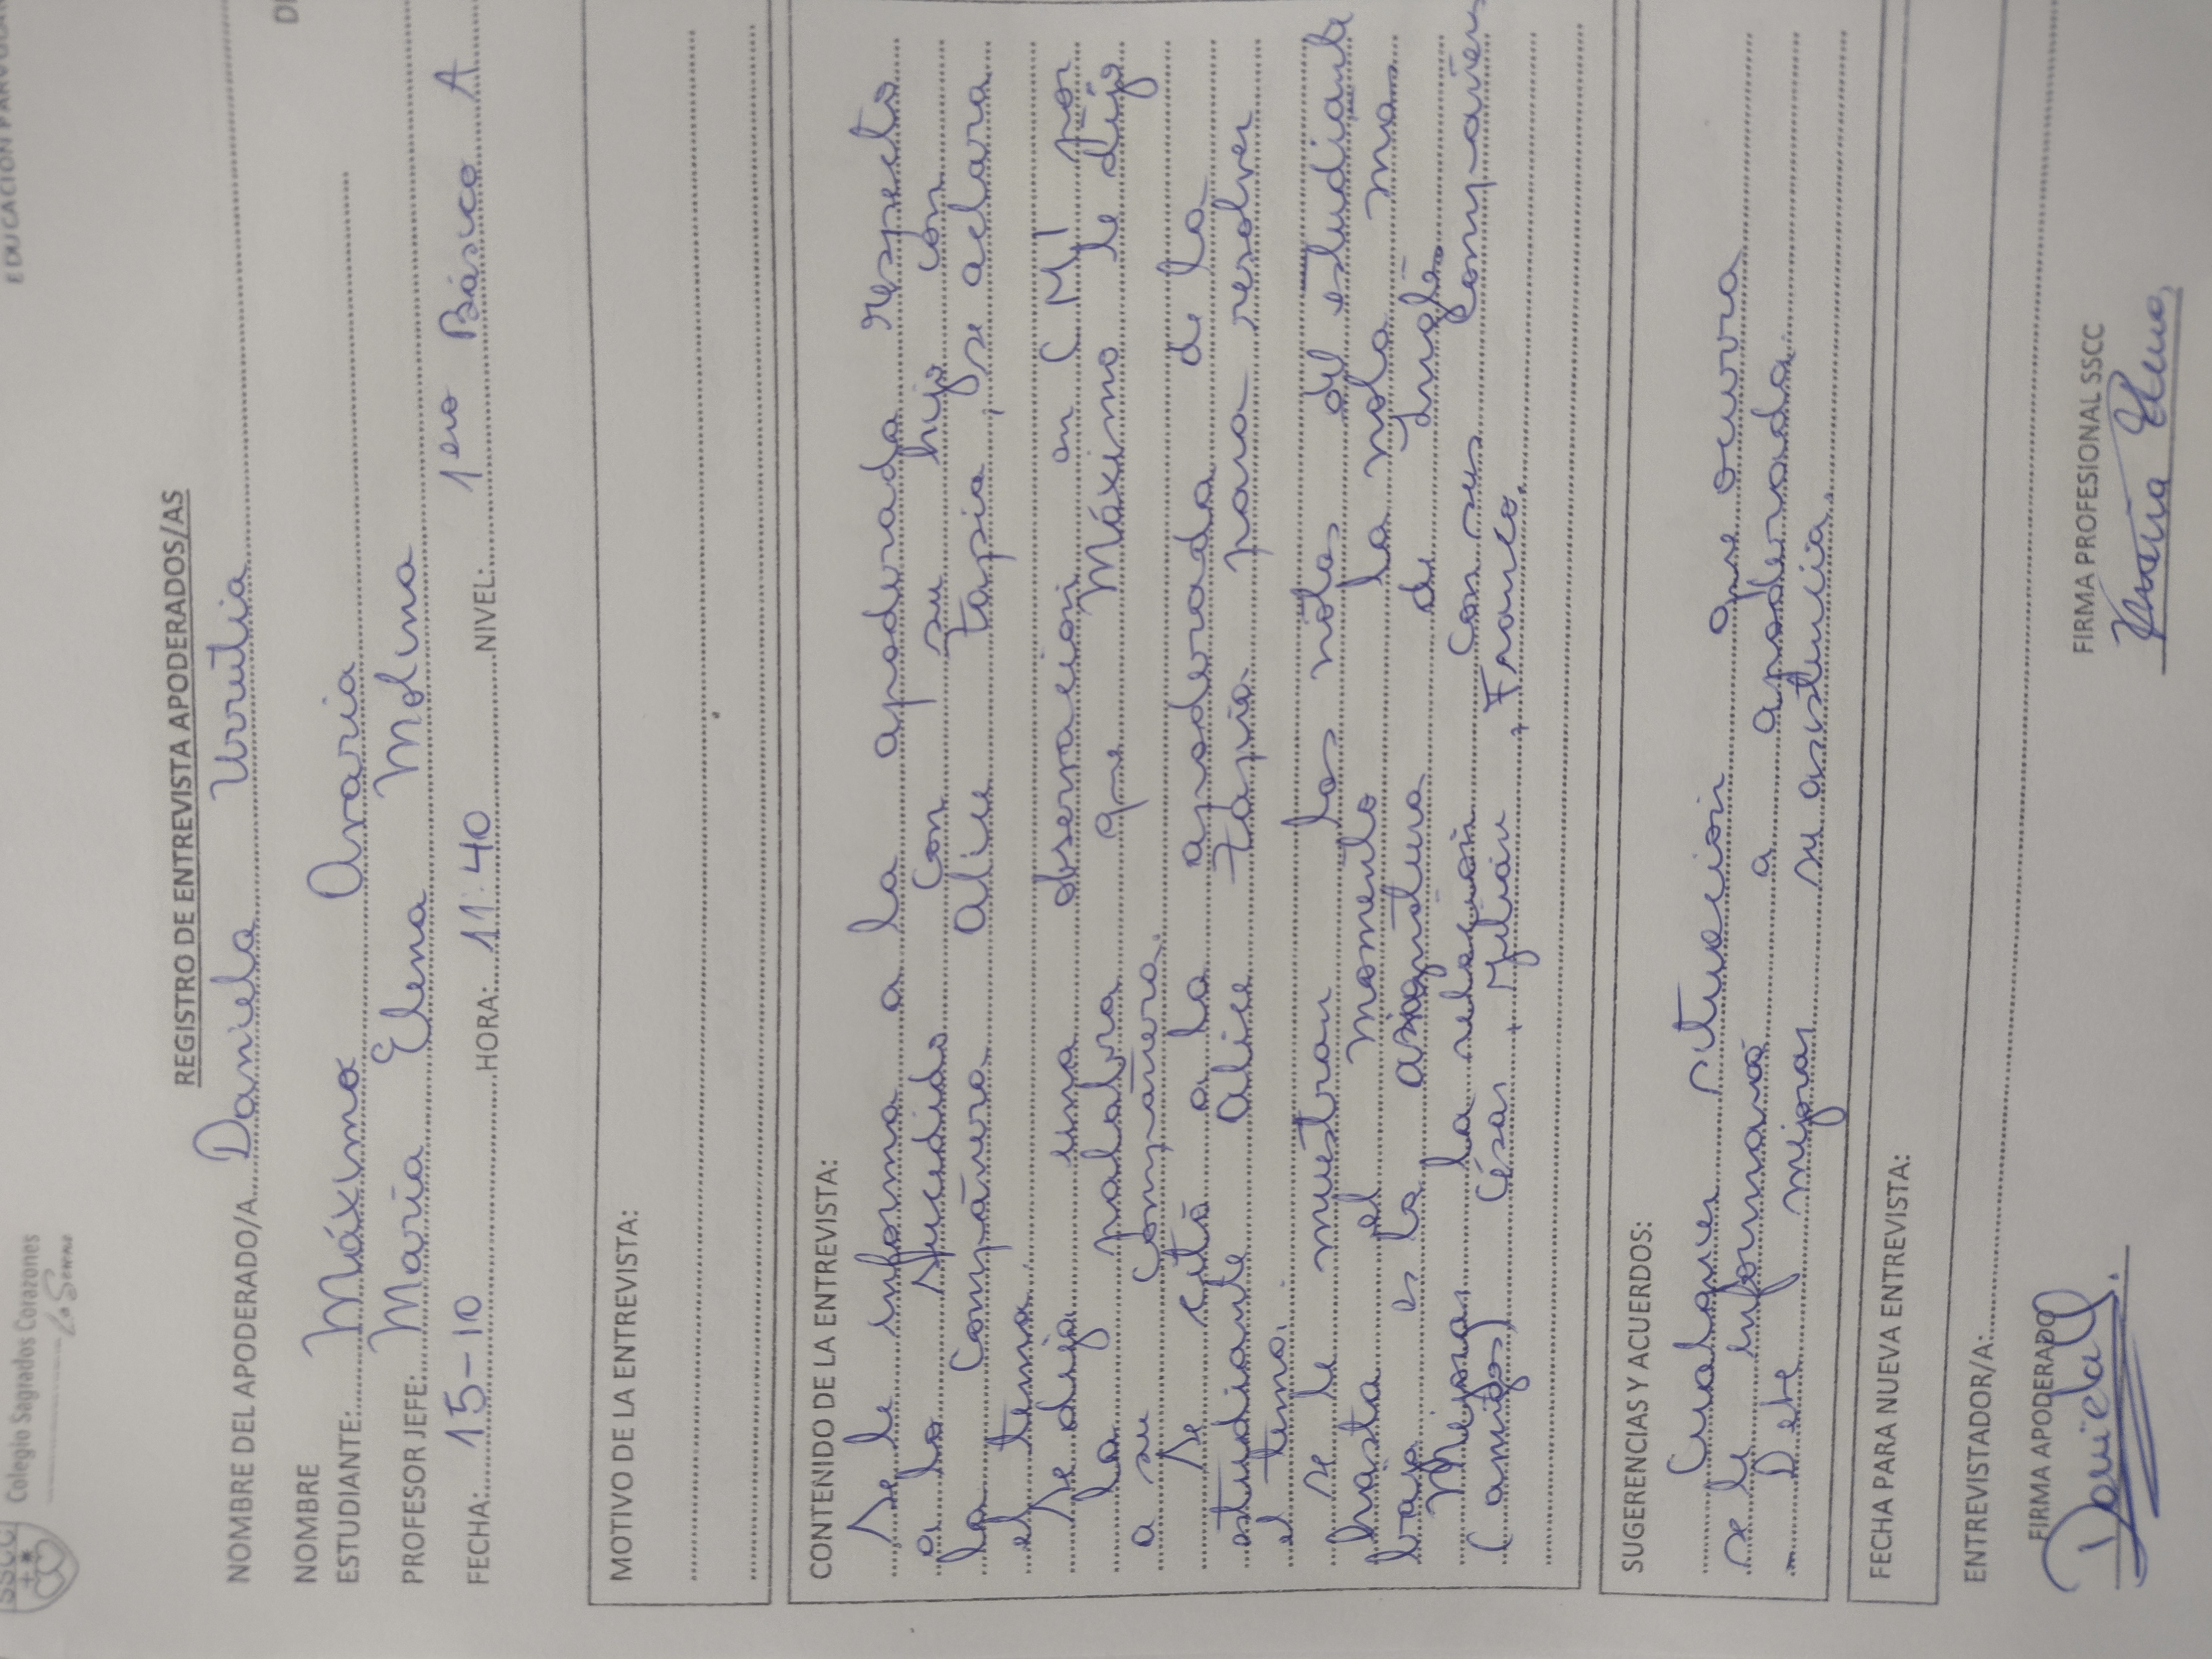 SSCC
Colegio Sagrados Corazones
La Serena
EDUCACIÓN
REGISTRO DE ENTREVISTA APODERADOS/AS
NOMBRE DEL APODERADO/A Daniela Urrutia
NOMBRE
ESTUDIANTE: Máximo Araria
PROFESOR JEFE: María Elena Molina
FECHA: 15-10 HORA: 11:40 NIVEL: 1ero Básico A
MOTIVO DE LA ENTREVISTA:
CONTENIDO DE LA ENTREVISTA:
Se le informa a la apoderada respecto
a lo sucedido con su hijo con
la compañera Alice Tapia, se aclara
el tema.
Se deja una observación en CMI por
la palabra que Máximo le dijo
a su compañera.
Se citó a la apoderada de la
estudiante Alice Tapia para resolver
el tema.
Se le muestran las notas del estudiante
hasta el momento la nota mas
baja es la asignatura de Inglés
Mejorar la relación con sus compañeros
(amigos) César, Julián, Franco.
SUGERENCIAS Y ACUERDOS:
Cualquier situación que ocurra
se le informará a apoderada.
- Debe mejorar su asistencia.
FECHA PARA NUEVA ENTREVISTA:
ENTREVISTADOR/A:
FIRMA APODERADO FIRMA PROFESIONAL SSCC
Daniela U. María Elena